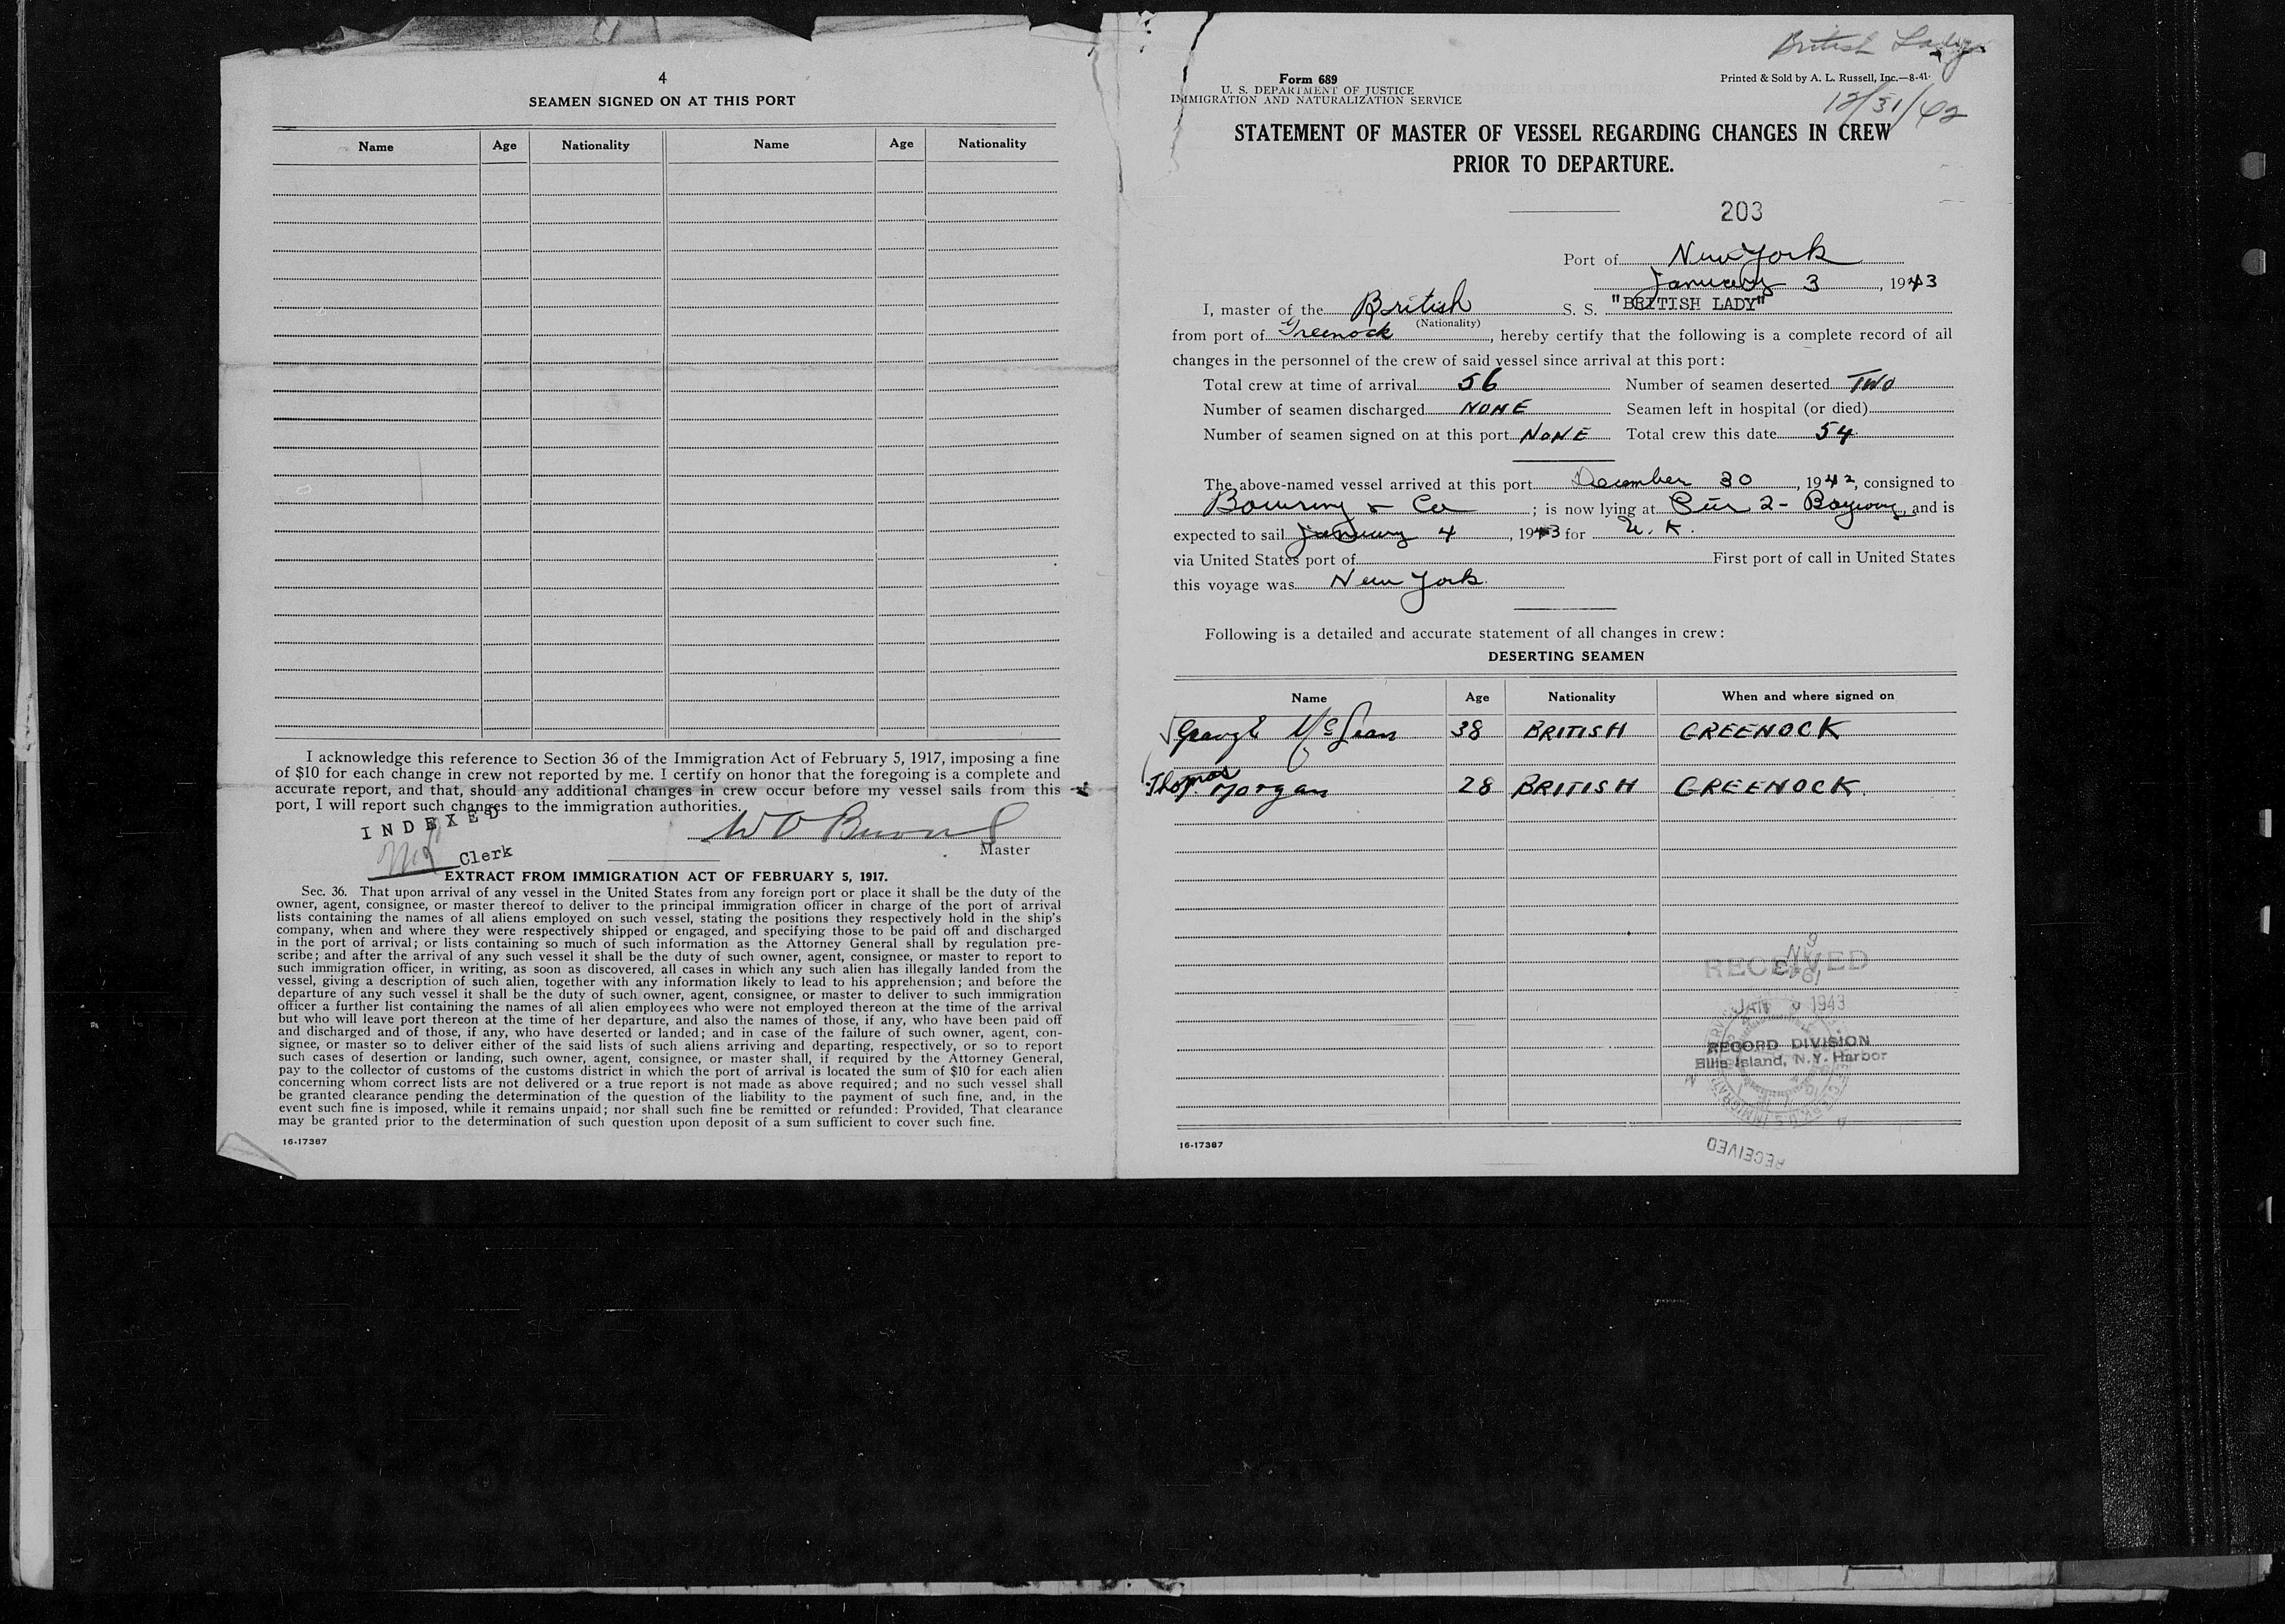 4
SEAMEN SIGNED ON AT THIS PORT
Name Age Nationality Name Age Nationality
I acknowledge this reference to Section 36 of the Immigration Act of February 5, 1917, imposing a fine
of $10 for each change in crew not reported by me. I certify on honor that the foregoing is a complete and
accurate report, and that, should any additional changes in crew occur before my vessel sails from this
port, I will report such changes to the immigration authorities.
INDEXED
Clerk
Master
EXTRACT FROM IMMIGRATION ACT OF FEBRUARY 5, 1917.
Sec. 36. That upon arrival of any vessel in the United States from any foreign port or place it shall be the duty of the
owner, agent, consignee, or master thereof to deliver to the principal immigration officer in charge of the port of arrival
lists containing the names of all aliens employed on such vessel, stating the positions they respectively hold in the ship's
company, when and where they were respectively shipped or engaged, and specifying those to be paid off and discharged
in the port of arrival; or lists containing so much of such information as the Attorney General shall by regulation pre-
scribe; and after the arrival of any such vessel it shall be the duty of such owner, agent, consignee, or master to report to
such immigration officer, in writing, as soon as discovered, all cases in which any such alien has illegally landed from the
vessel, giving a description of such alien, together with any information likely to lead to his apprehension; and before the
departure of any such vessel it shall be the duty of such owner, agent, consignee, or master to deliver to such immigration
officer a further list containing the names of all alien employees who were not employed thereon at the time of the arrival
but who will leave port thereon at the time of her departure, and also the names of those, if any, who have been paid off
and discharged and of those, if any, who have deserted or landed; and in case of the failure of such owner, agent, con-
signee, or master so to deliver either of the said lists of such aliens arriving and departing, respectively, or so to report
such cases of desertion or landing, such owner, agent, consignee, or master shall, if required by the Attorney General,
pay to the collector of customs of the customs district in which the port of arrival is located the sum of $10 for each alien
concerning whom correct lists are not delivered or a true report is not made as above required; and no such vessel shall
be granted clearance pending the determination of the question of the liability to the payment of such fine, and, in the
event such fine is imposed, while it remains unpaid; nor shall such fine be remitted or refunded: Provided, That clearance
may be granted prior to the determination of such question upon deposit of a sum sufficient to cover such fine.
16-17387
British Lady
Form 689
U. S. DEPARTMENT OF JUSTICE
IMMIGRATION AND NATURALIZATION SERVICE
Printed & Sold by A. L. Russell, Inc.—8-41.
12/31/42
STATEMENT OF MASTER OF VESSEL REGARDING CHANGES IN CREW
PRIOR TO DEPARTURE.
203
Port of New York
January 3, 1943
I, master of the British S. S. "BRITISH LADY"
(Nationality)
from port of Greenock, hereby certify that the following is a complete record of all
changes in the personnel of the crew of said vessel since arrival at this port:
Total crew at time of arrival 56 Number of seamen deserted TWO
Number of seamen discharged NONE Seamen left in hospital (or died)
Number of seamen signed on at this port NONE Total crew this date 54
The above-named vessel arrived at this port December 30, 1942, consigned to
Bowring & Co; is now lying at Pier 2 - Bayway, and is
expected to sail January 4, 1943 for U. K.
via United States port of First port of call in United States
this voyage was New York.
Following is a detailed and accurate statement of all changes in crew:
DESERTING SEAMEN
Name Age Nationality When and where signed on
George McLean 38 BRITISH GREENOCK
Thomas Morgan 28 BRITISH GREENOCK.
RECEIVED
JAN 1943
RECORD DIVISION
Ellis Island, N.Y. Harbor
RECEIVED
16-17387